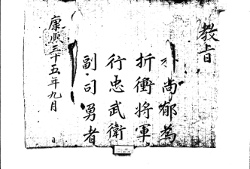 教旨
尚郁為
折衝將軍
行忠武衛
副司勇者
康熙三十五年九月